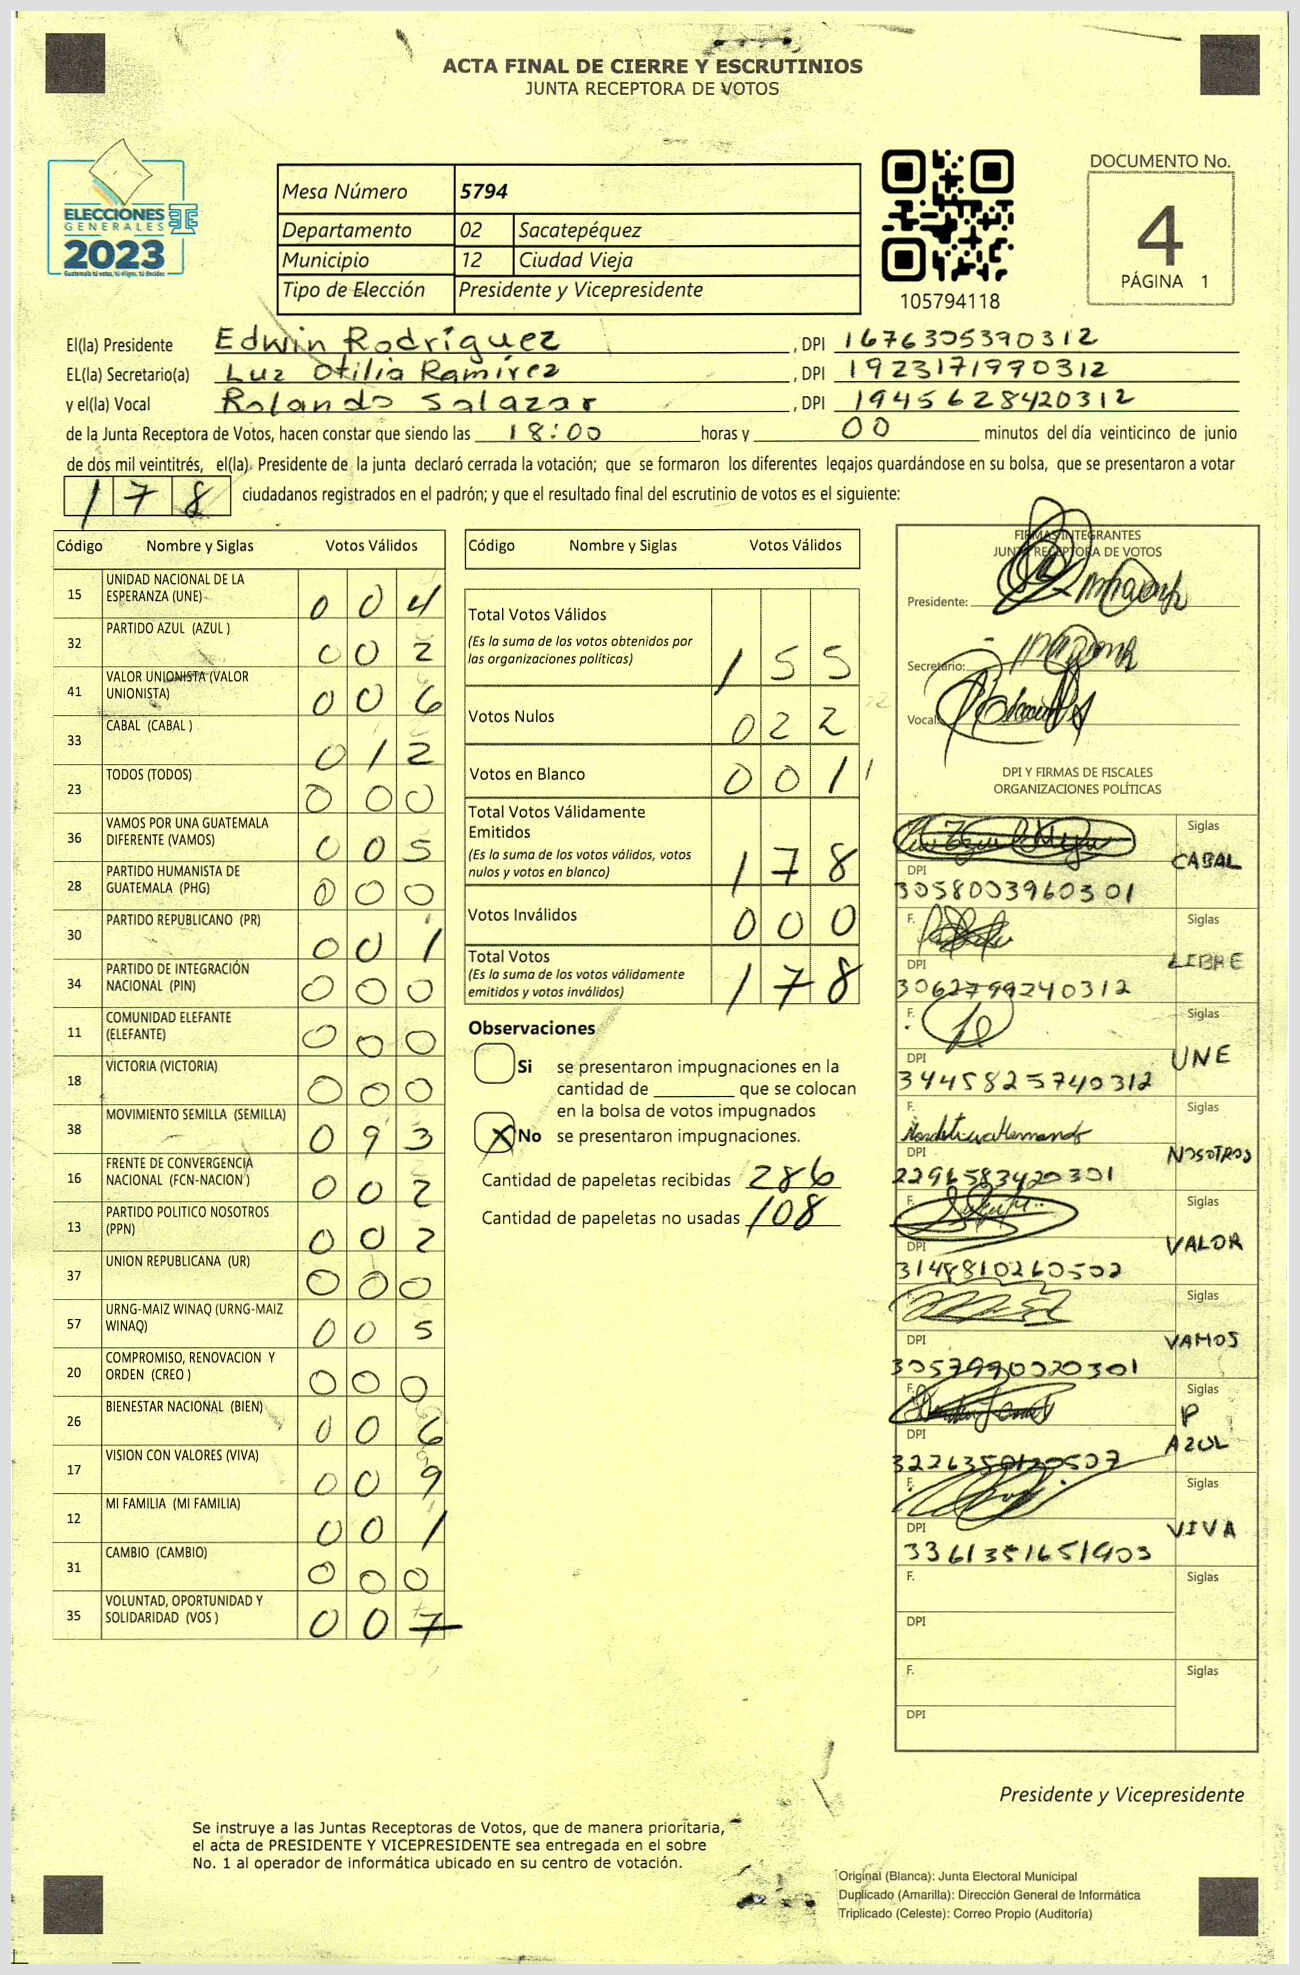 ACTA FINAL DE CIERRE Y ESCRUTINIOS
JUNTA RECEPTORA DE VOTOS
ELECCIONES
GENERALES
2023
Guatemala tú votas, tú eliges, tú decides
Mesa Número 5794
Departamento 02 Sacatepéquez
Municipio 12 Ciudad Vieja
Tipo de Elección Presidente y Vicepresidente
105794118
DOCUMENTO No.
4
PÁGINA 1
El(la) Presidente Edwin Rodríguez , DPI 1676305390312
EL(la) Secretario(a) Luz Otilia Ramírez , DPI 1923171990312
y el(la) Vocal Rolando Salazar , DPI 1945628420312
de la Junta Receptora de Votos, hacen constar que siendo las 18:00 horas y 00 minutos del día veinticinco de junio
de dos mil veintitrés, el(la). Presidente de la junta declaró cerrada la votación; que se formaron los diferentes legajos quardándose en su bolsa, que se presentaron a votar
178 ciudadanos registrados en el padrón; y que el resultado final del escrutinio de votos es el siguiente:
Código Nombre y Siglas Votos Válidos
15 UNIDAD NACIONAL DE LA
ESPERANZA (UNE) 004
32 PARTIDO AZUL (AZUL ) 002
41 VALOR UNIONISTA (VALOR
UNIONISTA) 006
33 CABAL (CABAL ) 012
23 TODOS (TODOS) 000
36 VAMOS POR UNA GUATEMALA
DIFERENTE (VAMOS) 005
28 PARTIDO HUMANISTA DE
GUATEMALA (PHG) 000
30 PARTIDO REPUBLICANO (PR) 001
34 PARTIDO DE INTEGRACIÓN
NACIONAL (PIN) 000
11 COMUNIDAD ELEFANTE
(ELEFANTE) 000
18 VICTORIA (VICTORIA) 000
38 MOVIMIENTO SEMILLA (SEMILLA) 093
16 FRENTE DE CONVERGENCIA
NACIONAL (FCN-NACION ) 002
13 PARTIDO POLITICO NOSOTROS
(PPN) 002
37 UNION REPUBLICANA (UR) 000
57 URNG-MAIZ WINAQ (URNG-MAIZ
WINAQ) 005
20 COMPROMISO, RENOVACION Y
ORDEN (CREO ) 000
26 BIENESTAR NACIONAL (BIEN) 006
17 VISION CON VALORES (VIVA) 009
12 MI FAMILIA (MI FAMILIA) 001
31 CAMBIO (CAMBIO) 000
35 VOLUNTAD, OPORTUNIDAD Y
SOLIDARIDAD (VOS ) 007
Código Nombre y Siglas Votos Válidos
Total Votos Válidos
(Es la suma de los votos obtenidos por
las organizaciones políticas) 155
Votos Nulos 022
Votos en Blanco 001
Total Votos Válidamente
Emitidos
(Es la suma de los votos válidos, votos
nulos y votos en blanco) 178
Votos Inválidos 000
Total Votos
(Es la suma de los votos válidamente
emitidos y votos inválidos) 178
Observaciones
Si se presentaron impugnaciones en la
cantidad de que se colocan
en la bolsa de votos impugnados
X No se presentaron impugnaciones.
Cantidad de papeletas recibidas 286
Cantidad de papeletas no usadas 108
FIRMAS INTEGRANTES
JUNTA RECEPTORA DE VOTOS
Presidente:
Secretario:
Vocal:
DPI Y FIRMAS DE FISCALES
ORGANIZACIONES POLÍTICAS
Siglas
CABAL
DPI
3058003960301
F. Siglas
LIBRE
DPI
3062799240312
F. Siglas
UNE
DPI
3445825740312
F. Siglas
NOSOTROS
DPI
2296583420301
F. Siglas
VALOR
DPI
3148810260502
F. Siglas
VAMOS
DPI
3057990020301
F. Siglas
P
AZUL
DPI
3226350120507
F. Siglas
VIVA
DPI
3361351651903
F. Siglas
DPI
F. Siglas
DPI
Presidente y Vicepresidente
Se instruye a las Juntas Receptoras de Votos, que de manera prioritaria,
el acta de PRESIDENTE Y VICEPRESIDENTE sea entregada en el sobre
No. 1 al operador de informática ubicado en su centro de votación.
Original (Blanca): Junta Electoral Municipal
Duplicado (Amarilla): Dirección General de Informática
Triplicado (Celeste): Correo Propio (Auditoría)